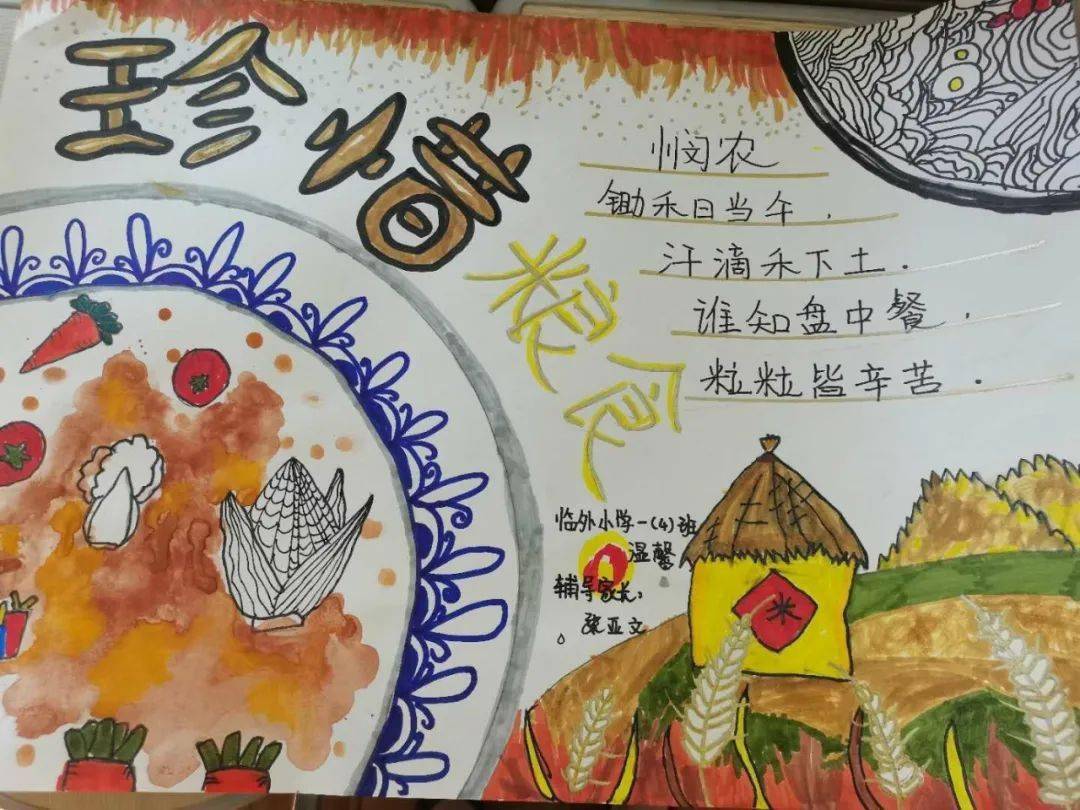 珍惜
粮食
悯农
锄禾日当午.
汗滴禾下土.
谁知盘中餐.
粒粒皆辛苦.
临外小学一(4)班
温馨
辅导家长:
张亚文
米